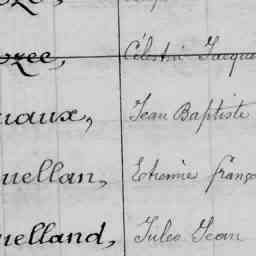 ozec, Célestin Jacque
uaux, Jean Baptiste
uellan, Etienne franço
uelland, Jules Jean